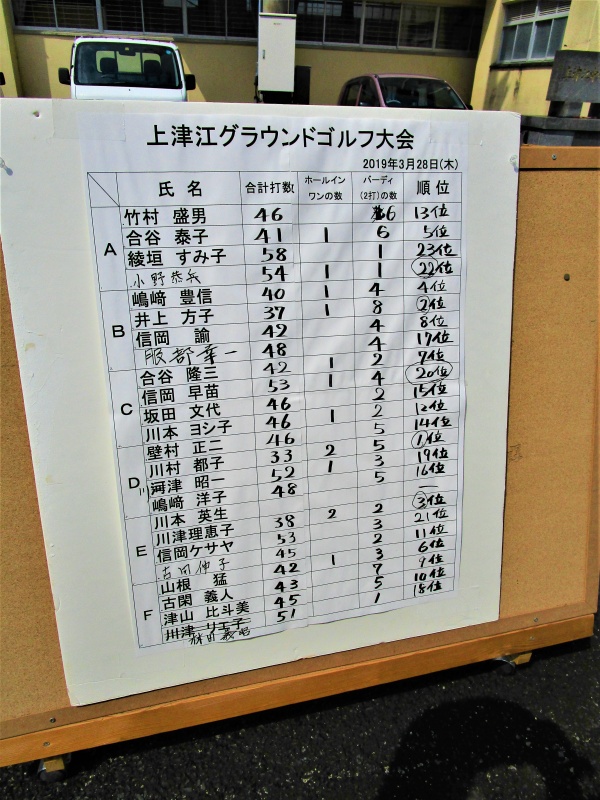 上津江グラウンドゴルフ大会
2019年3月28日(木)
氏名 合計打数 ホールインワンの数 バーディ(2打)の数 順位
A
竹村 盛男 46 6 13位
合谷 泰子 41 1 6 5位
綾垣 すみ子 58 1 23位
小野恭兵 54 1 1 22位
B
嶋﨑 豊信 40 1 4 4位
井上 方子 37 1 8 2位
信岡 諭 42 4 8位
服部幸一 48 4 17位
C
合谷 隆三 42 1 2 7位
信岡 早苗 53 1 4 20位
坂田 文代 46 2 15位
川本 ヨシ子 46 1 2 12位
D
壁村 正二 46 5 14位
川村 都子 33 2 5 1位
河津 昭一 52 1 3 19位
嶋﨑 洋子 48 5 16位
E
川本 英生 —
川津理恵子 38 2 2 3位
信岡ケサヤ 53 3 21位
45 2 11位
F
山根 猛 42 1 3 6位
古閑 義人 43 7 9位
津山 比斗美 45 5 10位
リエ子 51 1 18位